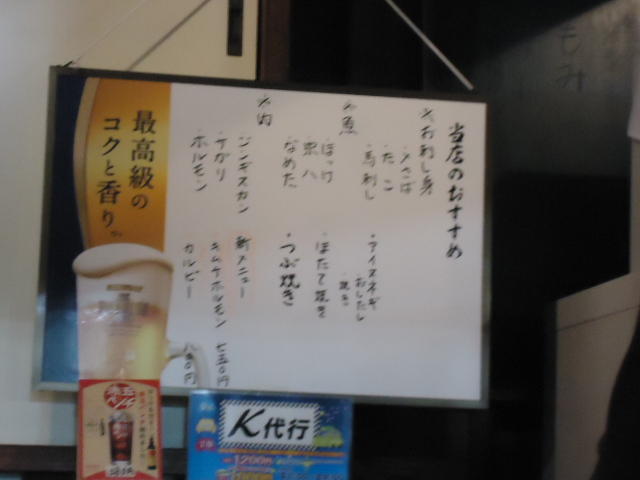 当店のおすすめ
※お刺し身
・〆さば
・たこ
・馬刺し
・アイスネギ
おしたし
焼き
※魚
・ほっけ
・宗八
・なめた
・ほたて焼き
・つぶ焼き
※肉
・ジンギスカン
・サガリ
・ホルモン
新メニュー
キムチホルモン 七五〇円
カルビー
最高級の
コクと香り。
K代行
1200円
もみ